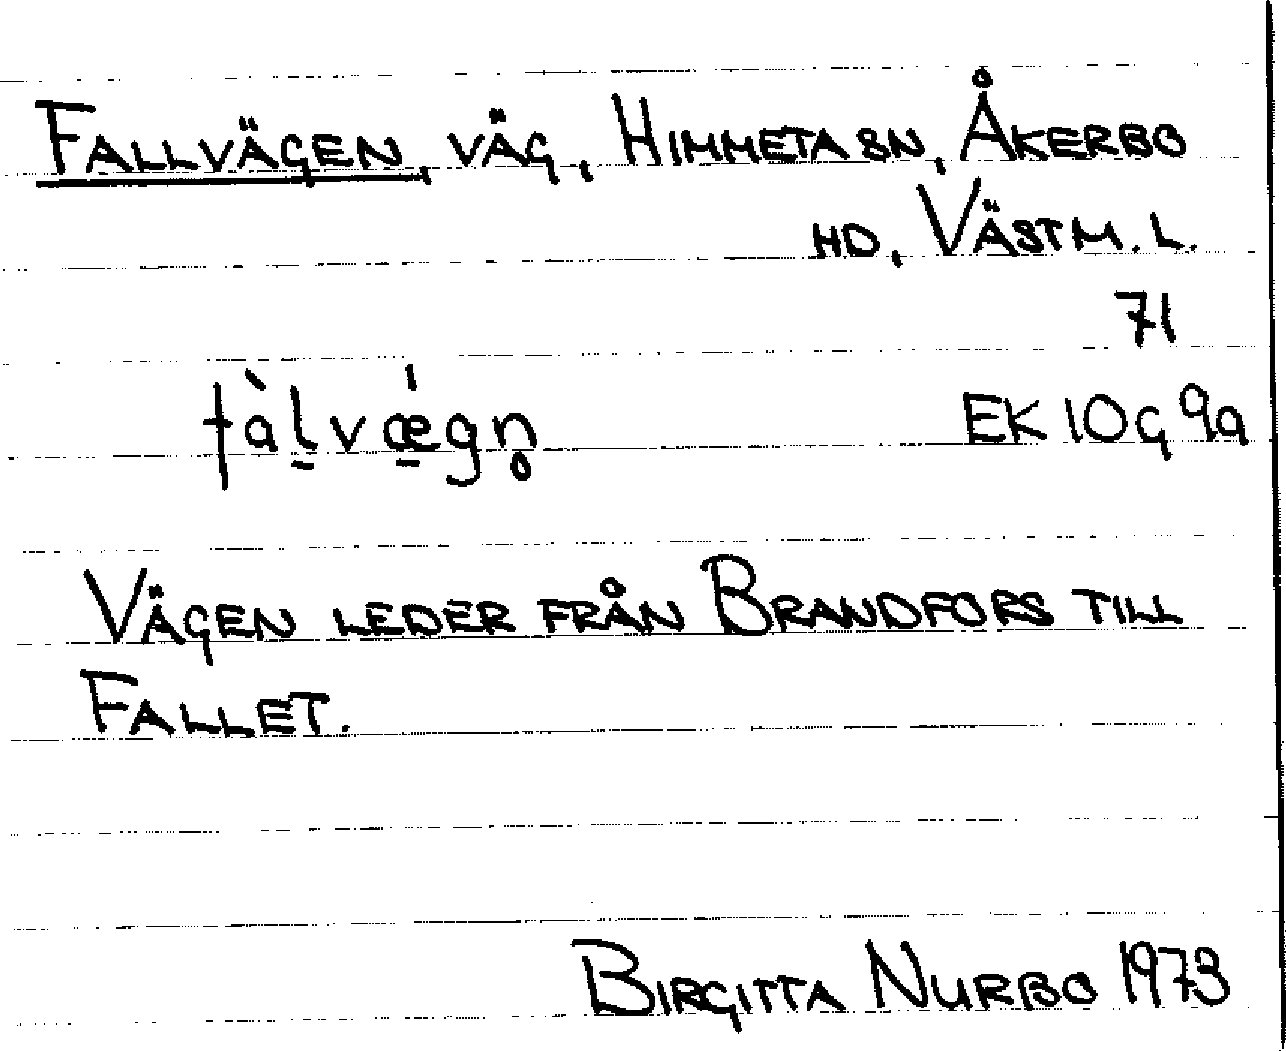 FALLVÄGEN, VÄG, HIMMETA SN, ÅKERBO
HD, VÄSTM. L.
71
fàl̠vǽ̠gn̥
EK 10G 9a
VÄGEN LEDER FRÅN BRANDFORS TILL
FALLET.
BIRGITTA NURBO 1973